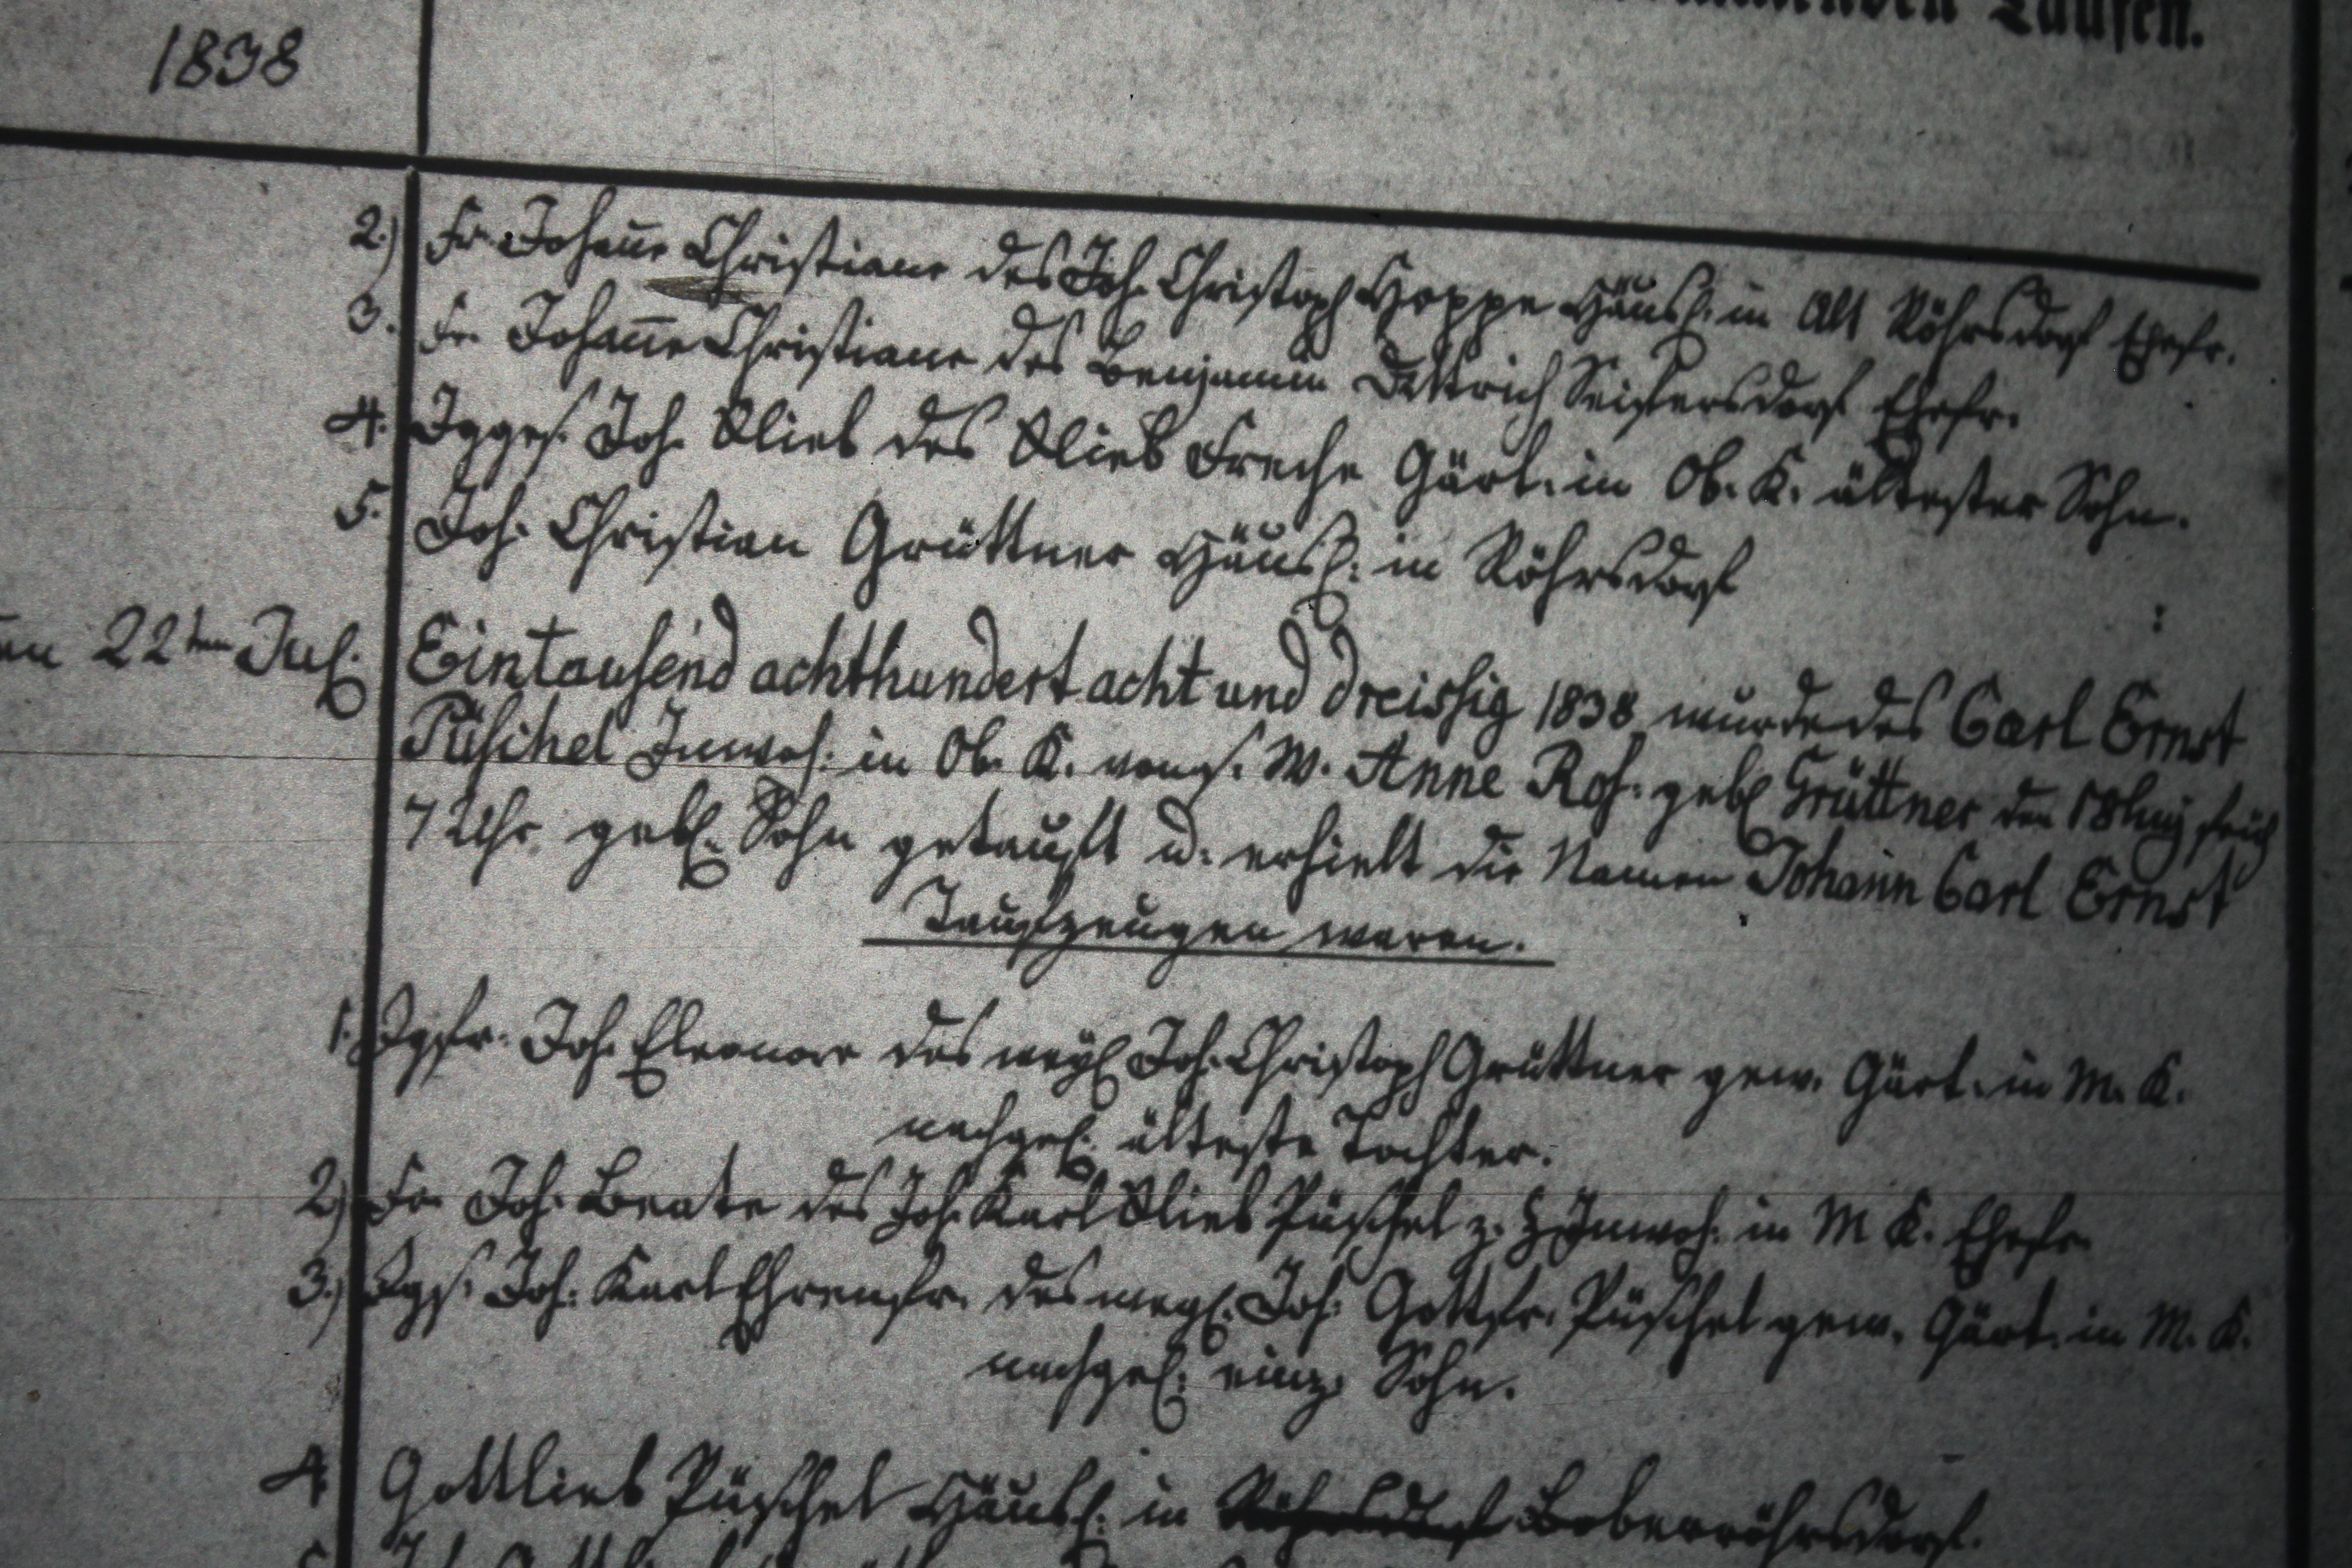 Taufen.
1838
2.) Fr. Johanne Christiane des Joh. Christoph Hoppe Häusl. in Alt Röhrsdorf Ehefr.
3. Fr. Johanne Christiane des Benjamin Dittrich Seifersdorf Ehefr.
4. Jgges. Joh. Glieb des Glieb Freche Gärt. in Ob. K. ältester Sohn.
5. Joh. Christian Grüttner Häusl. in Röhrsdorf
22ten Jul. Eintausend achthundert acht und dreissig 1838 wurde des Carl Ernst
Püschel Inwoh. in Ob. K. W. Anne Ros. geb. Grüttner den 18 früh
7 Uhr gebl. Sohn getauft u. erhielt die Namen Johann Carl Ernst
Taufzeugen waren.
1. Jgfr. Joh. Eleonore des weyl. Joh. Christoph Grüttner gew. Gärt. in M. K.
nachgel. älteste Tochter.
2) Fr. Joh. Beate des Joh. Karl Glieb Püschel z. Z. Inwoh. in M K. Ehefr.
3.) Jgs. Joh. Karl Ehrenfr. des weyl. Joh. Gottfr. Püschel gew. Gärt. in M. K.
nachgel. einz. Sohn.
4. Gottlieb Püschel Häusl. in Röhrsdorf Boberröhrsdorf.